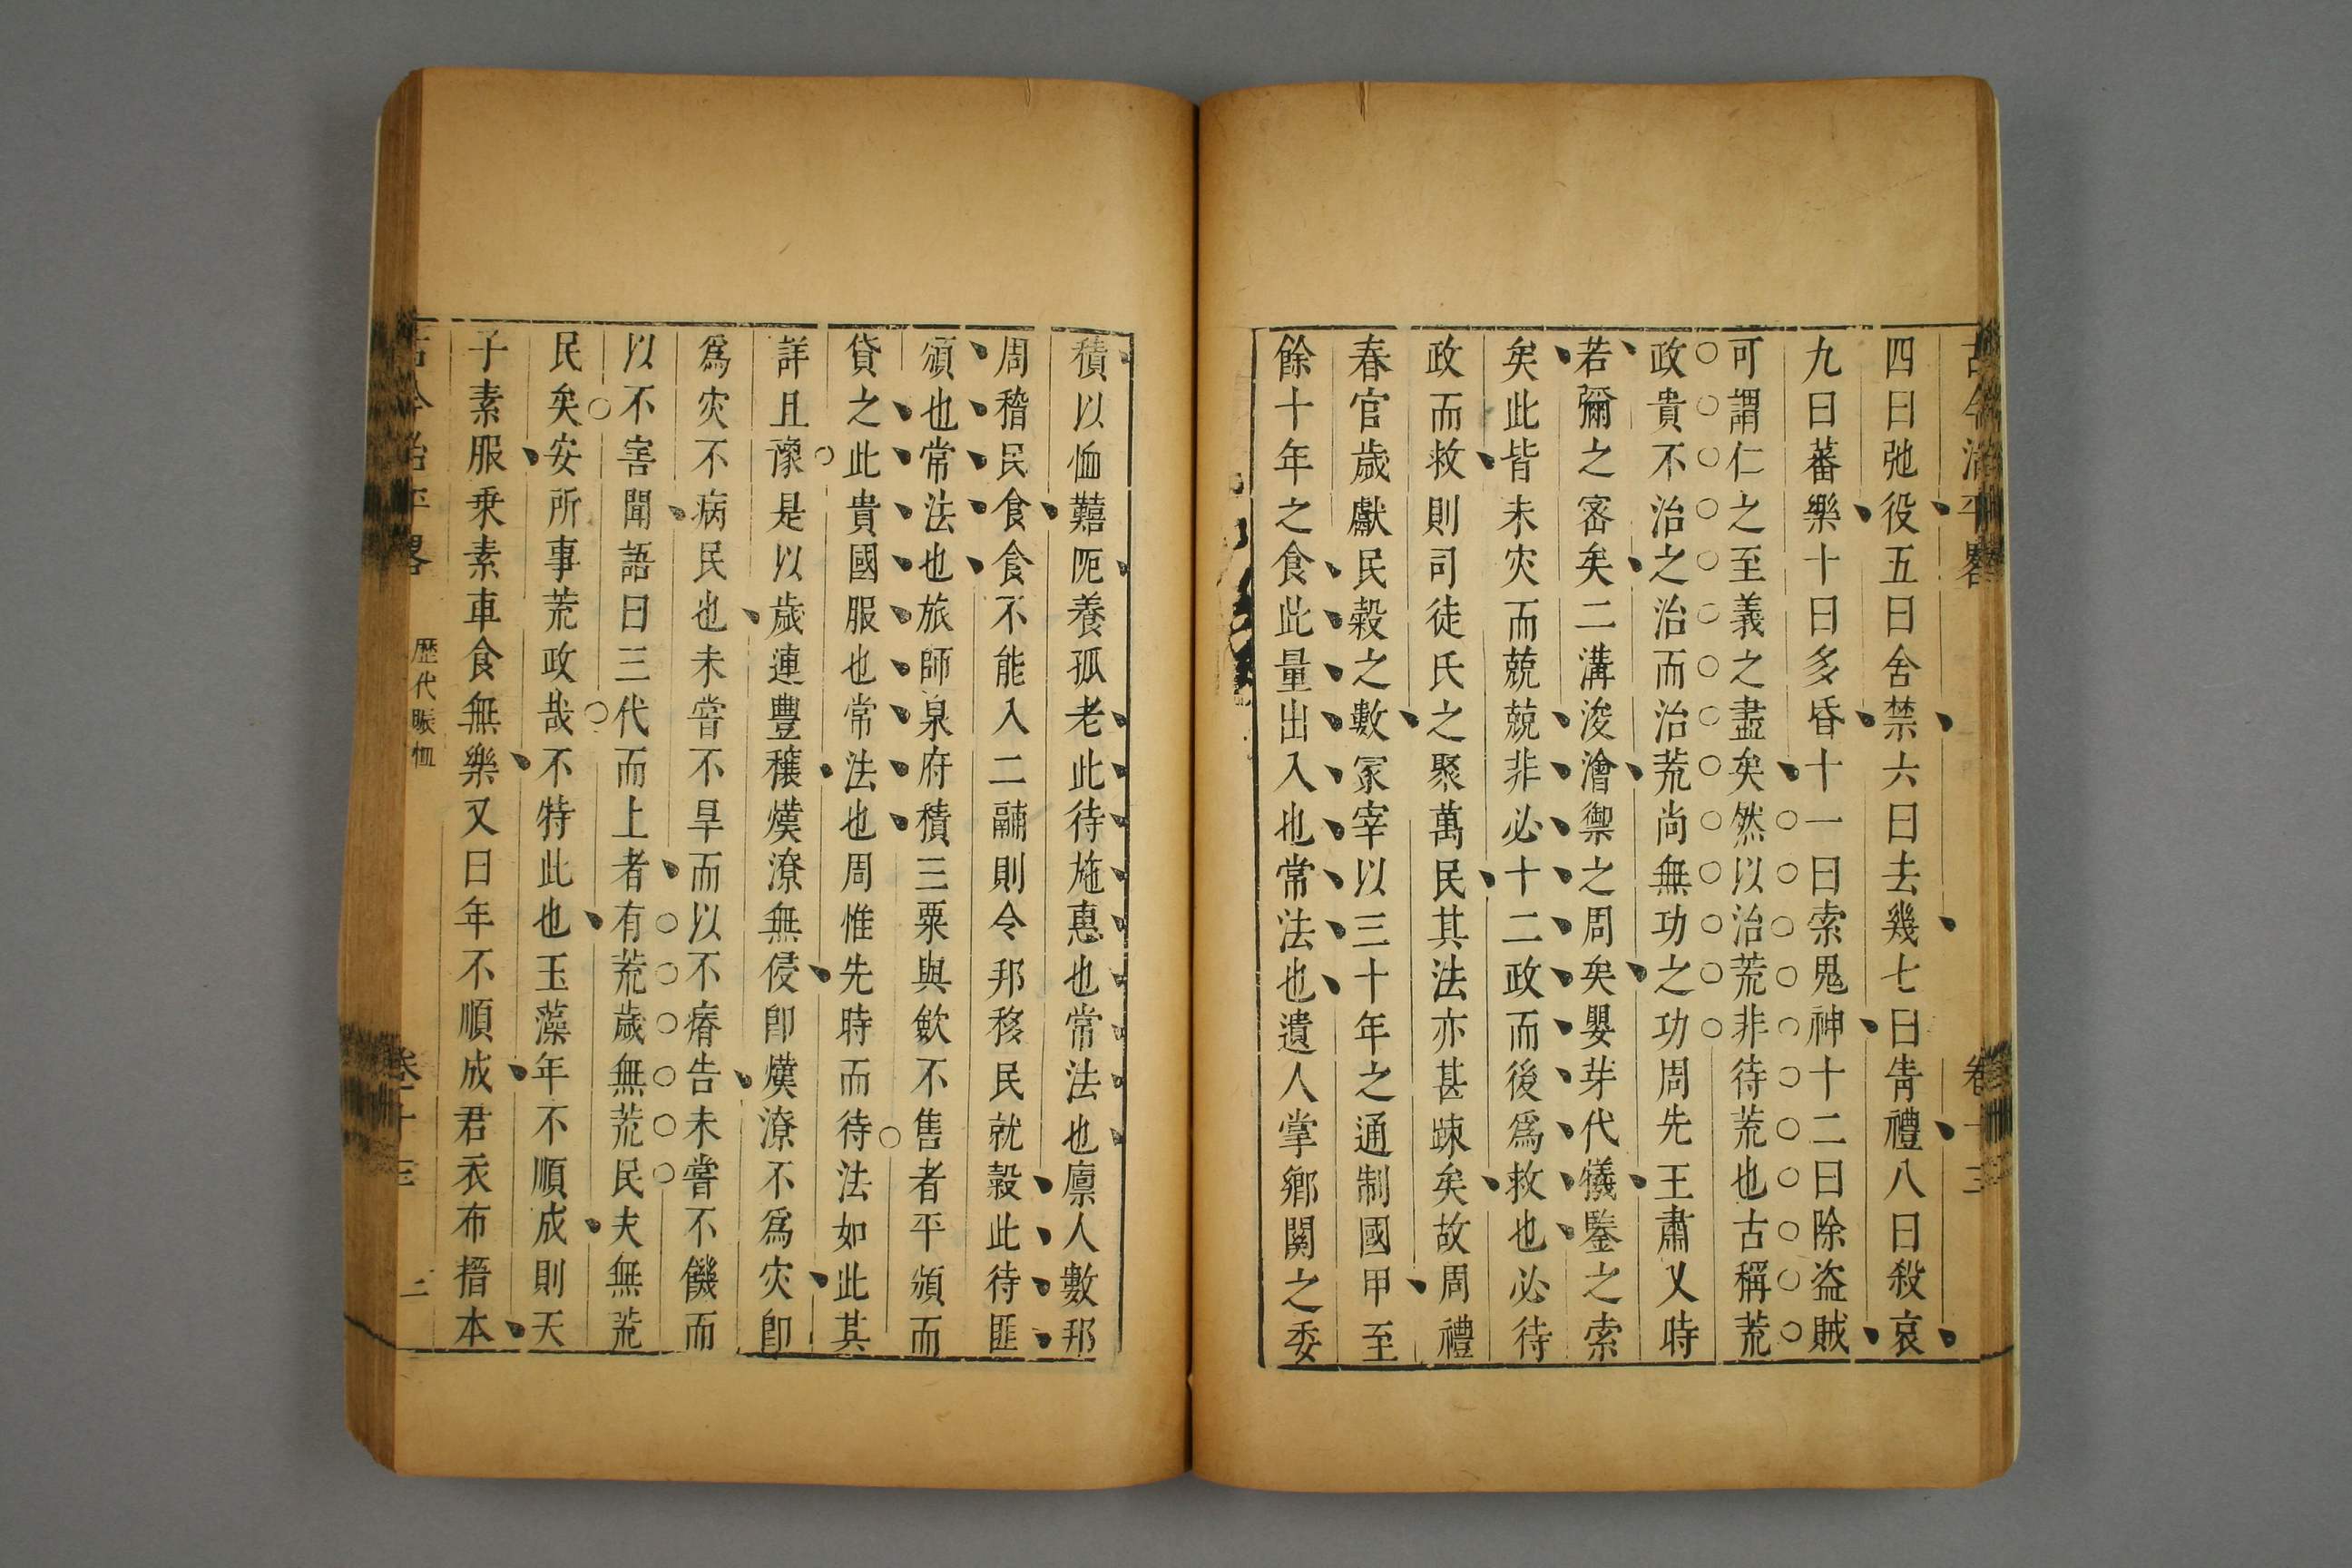 古今治平畧 卷十三
四曰弛役五曰舍禁六曰去幾七曰眚禮八曰殺哀
九曰蕃樂十曰多昏十一曰索鬼神十二曰除盗賊
可謂仁之至義之盡矣然以治荒非待荒也古稱荒
政貴不治之治而治荒尚無功之功周先王肅乂時
若彌之宻矣二溝浚澮禦之周矣嬰芽代犧鑒之索
矣此皆未灾而兢兢非必十二政而後爲救也必待
政而救則司徒氏之聚萬民其法亦甚踈矣故周禮
春官歲獻民穀之數冡宰以三十年之通制國甲至
餘十年之食此量出入也常法也遺人掌鄉關之委
積以恤囏阨養孤老此待施惠也常法也廪人數邦
周稽民食食不能入二鬴則令邦移民就穀此待匪
頒也常法也旅師泉府積三粟與歛不售者平頒而
貸之此貴國服也常法也周惟先時而待法如此其
詳且豫是以歲連豐穰熯潦無侵卽熯潦不爲灾卽
爲灾不病民也未嘗不旱而以不瘠告未嘗不饑而
以不害聞語曰三代而上者有荒歲無荒民夫無荒
民矣安所事荒政哉不特此也玉藻年不順成則天
子素服乗素車食無樂又曰年不順成君衣布搢本
古今治平畧 歷代賑恤 卷十三 二